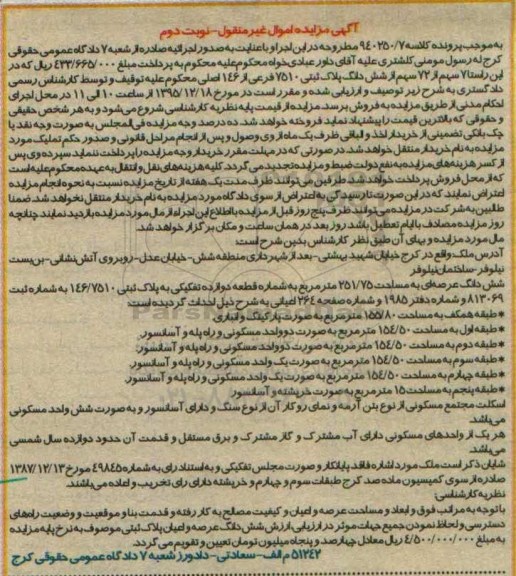 آگهی مزایده اموال غیر منقول-نوبت دوم
به موجب پرونده کلاسه ۹۴۰۲۵۰/۷ مطروحه در این اجرا و با عنایت به صدور اجرائیه صادره از شعبه ۷ دادگاه عمومی حقوقی
کرج له رسول مومنی کلشتری علیه آقای داور عبادی خواه محکوم علیه محکوم به پرداخت مبلغ ۴۳۳/۶۶۵/۰۰۰ ریال که در
این راستا ۷ سهم از ۷۲ سهم از شش دانگ پلاک ثبتی ۷۵۱۰ فرعی از ۱۴۶ اصلی محکوم علیه توقیف و توسط کارشناس رسمی
دادگستری به شرح زیر توصیف و ارزیابی شده و مقرر است در مورخ ۱۳۹۵/۱۲/۱۸ از ساعت ۱۰ الی ۱۱ در محل اجرای
احکام مدنی از طریق مزایده به فروش برسد. مزایده از قیمت پایه نظریه کارشناسی شروع می‌شود و به هر شخص حقیقی
و حقوقی که بالاترین قیمت را پیشنهاد نماید فروخته خواهد شد. ده درصد وجه مزایده فی المجلس به صورت وجه نقد یا
چک بانکی تضمینی از خریدار اخذ و الباقی ظرف یک ماه از وی وصول و پس از انجام مراحل قانونی و صدور حکم تملیک مورد
مزایده به نام خریدار منتقل خواهد شد. در صورتی که در مهلت مقرر خریدار وجه مزایده را پرداخت ننماید سپرده وی پس
از کسر هزینه‌های مزایده به نفع دولت ضبط و مزایده تجدید می گردد. کلیه هزینه‌های نقل و انتقال به عهده محکوم علیه است
که از محل فروش پرداخت خواهد شد. طرفین می توانند ظرف مدت یک هفته از تاریخ مزایده نسبت به نحوه انجام مزایده
اعتراض نمایند که در این صورت تا رسیدگی به اعتراض از سوی دادگاه مورد مزایده به نام خریدار منتقل نخواهد شد. ضمنا
طالبین به شرکت در مزایده می‌توانند ظرف پنج روز قبل از مزایده با اطلاع این اجرا از مال مورد مزایده بازدید نمایند چنانچه
روز مزایده مصادف با ایام تعطیل باشد روز بعد در همان ساعت و مکان برگزار خواهد شد.
مال مورد مزایده و بهای آن طبق نظر کارشناس بدین شرح است:
آدرس ملک واقع در کرج خیابان شهید بهشتی- بعد از شهرداری منطقه شش- خیابان عدل- روبروی آتش نشانی- بن بست
نیلوفر- ساختمان نیلوفر
شش دانگ عرصه‌ای به مساحت ۲۵۱/۷۵ متر مربع به شماره قطعه دوازده تفکیکی به پلاک ثبتی ۱۴۶/۷۵۱۰ به شماره ثبت
۸۱۳۰۶۹ و شماره دفتر ۱۹۸۵ و شماره صفحه ۲۶۴ اعیانی به شرح ذیل احداث گردیده است:
*طبقه همکف به مساحت ۱۵۵/۸۰ متر مربع به صورت پارکینگ و انباری.
*طبقه اول به مساحت ۱۵۴/۵۰ متر مربع به صورت دو واحد مسکونی و راه پله و آسانسور.
*طبقه دوم به مساحت ۱۵۴/۵۰ متر مربع به صورت دو واحد مسکونی و راه پله و آسانسور.
*طبقه سوم به مساحت ۱۵۴/۵۰ متر مربع به صورت یک واحد مسکونی و راه پله و آسانسور.
*طبقه چهارم به مساحت ۱۵۴/۵۰ متر مربع به صورت یک واحد مسکونی و راه پله و آسانسور.
*طبقه پنجم به مساحت ۱۵ متر مربع به صورت خرپشته و آسانسور.
اسکلت مجتمع مسکونی از نوع بتن آرمه و نمای رو کار آن از نوع سنگ و دارای آسانسور و به صورت شش واحد مسکونی
می‌باشد.
هر یک از واحدهای مسکونی دارای آب مشترک و گاز مشترک و برق مستقل و قدمت آن حدود دوازده سال شمسی
می‌باشد.
شایان ذکر است ملک مورد اشاره فاقد پایانکار و صورت مجلس تفکیکی و به استناد رای به شماره ۴۹۸۴۵ مورخ ۱۳۸۷/۱۲/۱۳
صادره از سوی کمیسیون ماده صد کرج طبقات سوم و چهارم و خرپشته دارای رای تخریب و اعاده می‌باشند.
نظریه کارشناسی:
با توجه به مراتب فوق و ابعاد و مساحت عرصه و اعیان و کیفیت مصالح به کار رفته و قدمت بنا و موقعیت و وضعیت راه‌های
دسترسی و لحاظ نمودن جمیع جهات موثر در ارزیابی، ارزش شش دانگ عرصه و اعیان پلاک ثبتی موصوف به نرخ پایه مزایده
به مبلغ ۴/۵۰۰/۰۰۰/۰۰۰ ریال معادل چهارصد و پنجاه میلیون تومان تعیین و تقویم می‌گردد.
۵۱۲۴۲ م الف- سعادتی- دادورز شعبه ۷ دادگاه عمومی حقوقی کرج